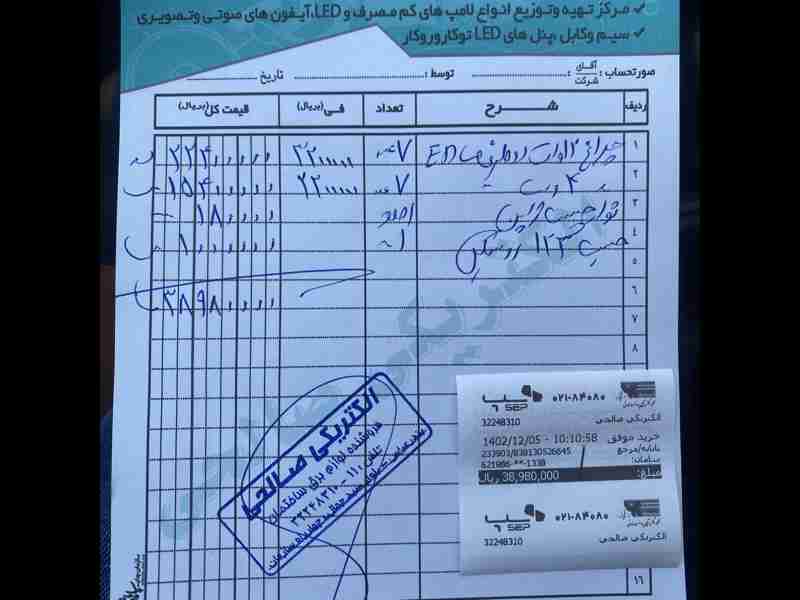 مرکز تهیه وتوزیع انواع لامپ های کم مصرف و LED،آیفون های صوتی وتصویری
سیم وکابل ،پنل های LED توکاروروکار
صورتحساب : آقای / شرکت : توسط : تاریخ
ردیف شرح تعداد فی(به ریال) قیمت کل(به ریال)
۱ چراغ ۱۲ وات ۷ عدد ۳۲۰۰۰۰۰ ۲۲۴۰۰۰۰۰
۲ ۷ عدد ۲۲۰۰۰۰۰ ۱۵۴۰۰۰۰۰
۳ نوار چسب ۱ عدد ۱۸۰۰۰۰
۴ چسب ۱۲۳ ۱۰۰۰۰۰۰
۵
۶ ۳۸۹۸۰۰۰۰
۷
۸
الکتریکی صالحی
فروشنده لوازم برق ساختمان
سپ SEP ۰۲۱-۸۴۰۸۰
32248310 الکتریکی صالحی
خرید موفق 1402/12/05 - 10:10:58
پایانه/مرجع 233903/838130526645
سامان: 621986-**-1338
مبلغ: 38,980,000 ریال
سپ SEP ۰۲۱-۸۴۰۸۰
32248310 الکتریکی صالحی
۱۶